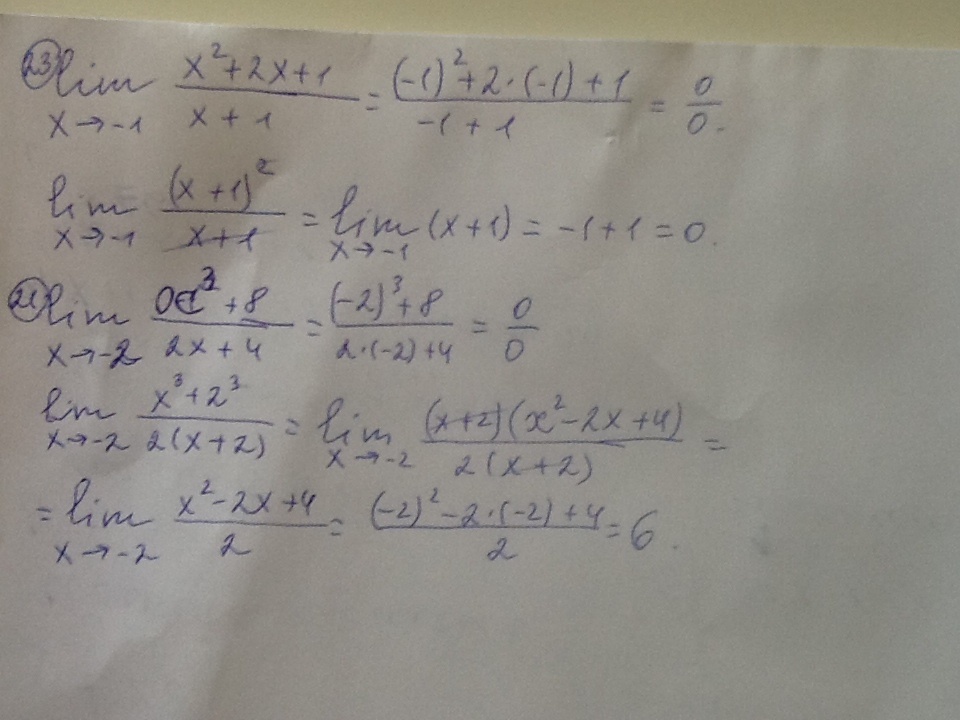 23) lim x→-1 (x²+2x+1)/(x+1) = ((-1)²+2·(-1)+1)/(-1+1) = 0/0.
lim x→-1 (x+1)²/(x+1) = lim x→-1 (x+1) = -1+1 = 0.
21) lim x→-2 (x³+8)/(2x+4) = ((-2)³+8)/(2·(-2)+4) = 0/0
lim x→-2 (x³+2³)/(2(x+2)) = lim x→-2 ((x+2)(x²-2x+4))/(2(x+2)) =
= lim x→-2 (x²-2x+4)/2 = ((-2)²-2·(-2)+4)/2 = 6.